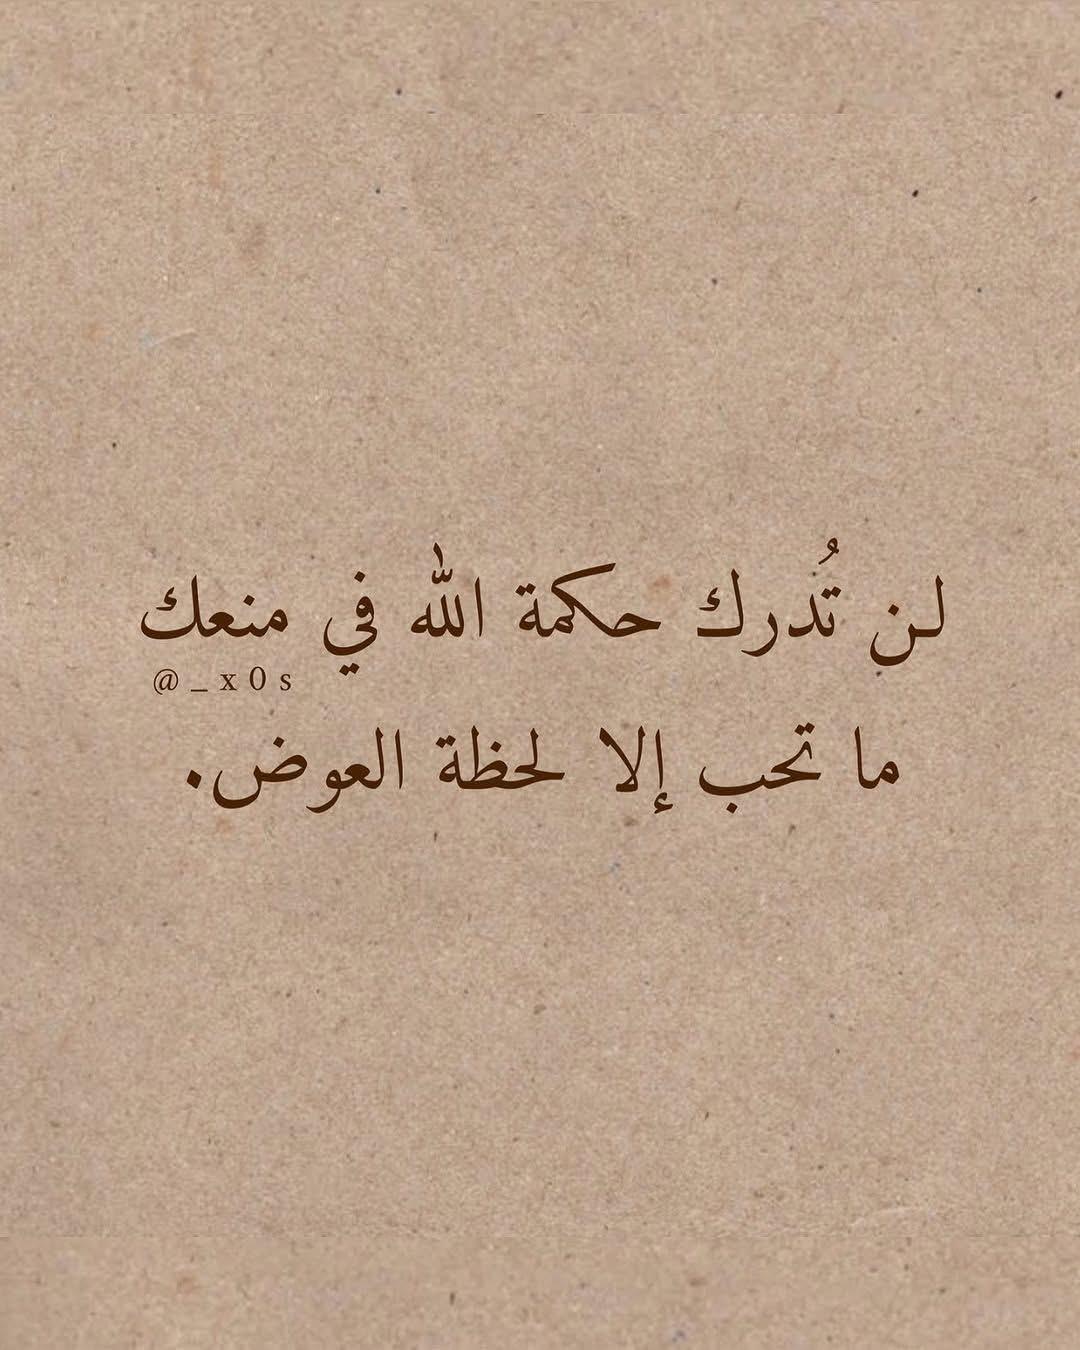 لن تُدرك حكمة الله في منعك
@_x0s
ما تحب إلا لحظة العوض.